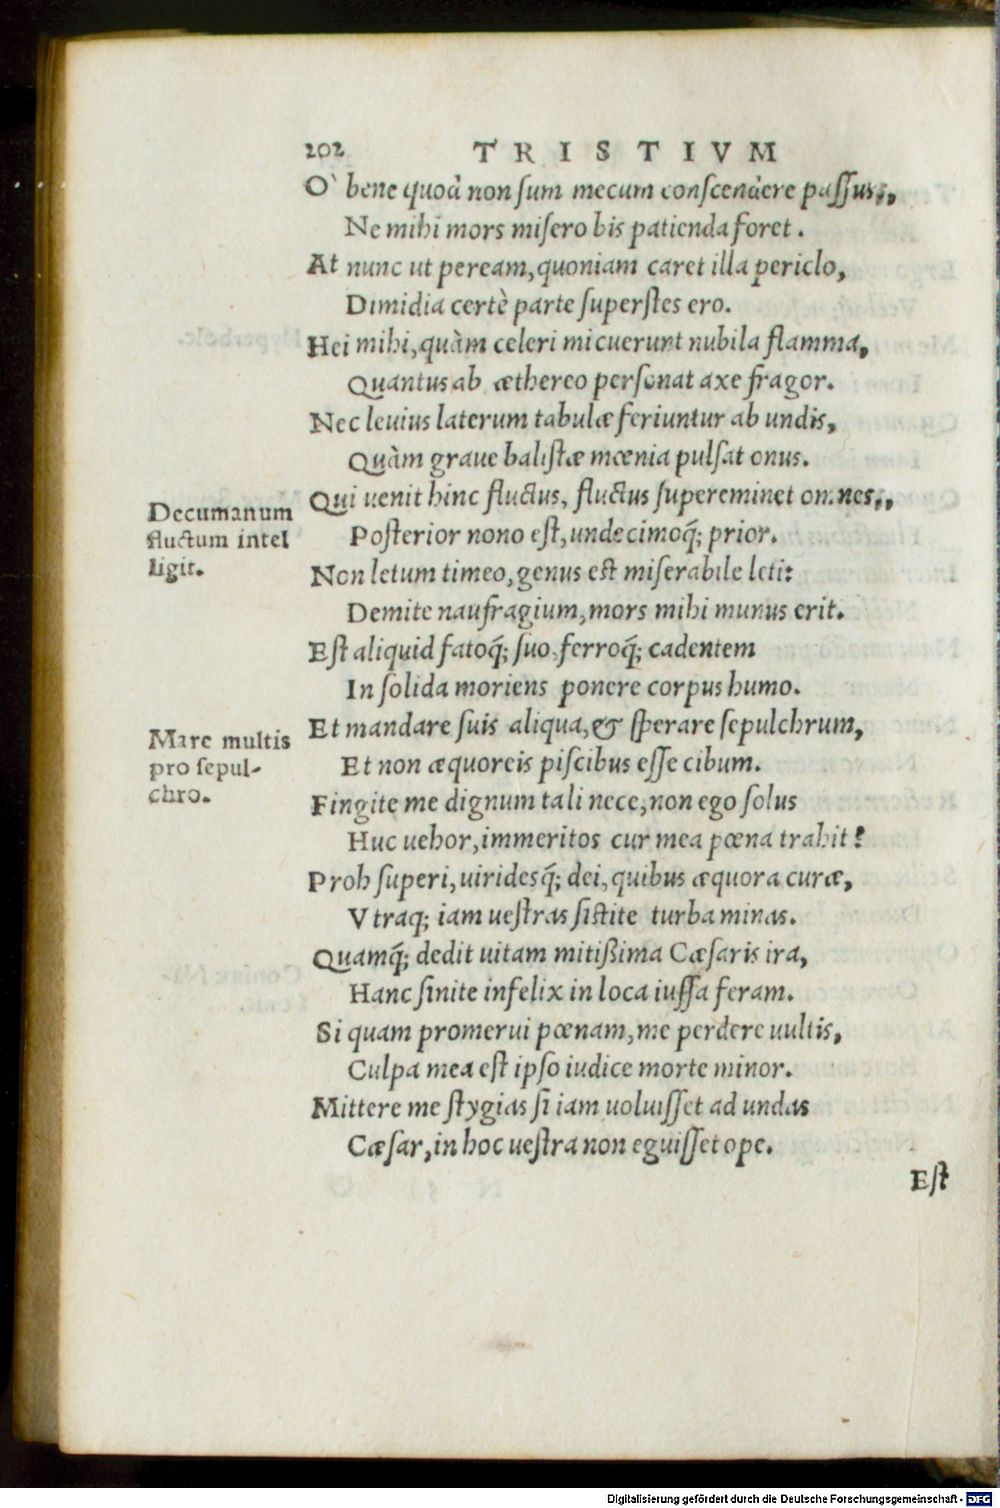 202 TRISTIVM
O` bene quòd non sum mecum conscendere passus,
Ne mihi mors misero bis patienda foret.
At nunc ut peream, quoniam caret illa periclo,
Dimidia certè parte superstes ero.
Hei mihi, quàm celeri micuerunt nubila flamma,
Quantus ab æthereo personat axe fragor.
Nec leuius laterum tabulæ feriuntur ab undis,
Quàm graue balistæ mœnia pulsat onus.
Qui uenit hinc fluctus, fluctus supereminet omnes,
Decumanum
fluctum intel
ligit.
Posterior nono est, undecimoq́; prior.
Non letum timeo, genus est miserabile leti:
Demite naufragium, mors mihi munus erit.
Est aliquid fatoq́; suo, ferroq́; cadentem
In solida moriens ponere corpus humo.
Et mandare suis aliqua, & sperare sepulchrum,
Mare multis
pro sepul-
chro.
Et non æquoreis piscibus esse cibum.
Fingite me dignum tali nece, non ego solus
Huc uehor, immeritos cur mea pœna trahit?
Proh superi, uiridesq́; dei, quibus æquora curæ,
Vtraq; iam uestras sistite turba minas.
Quamq́; dedit uitam mitißima Cæsaris ira,
Hanc sinite infelix in loca iussa feram.
Si quam promerui pœnam, me perdere uultis,
Culpa mea est ipso iudice morte minor.
Mittere me stygias si iam uoluisset ad undas
Cæsar, in hoc uestra non eguisset ope.
Est
Digitalisierung gefördert durch die Deutsche Forschungsgemeinschaft - DFG